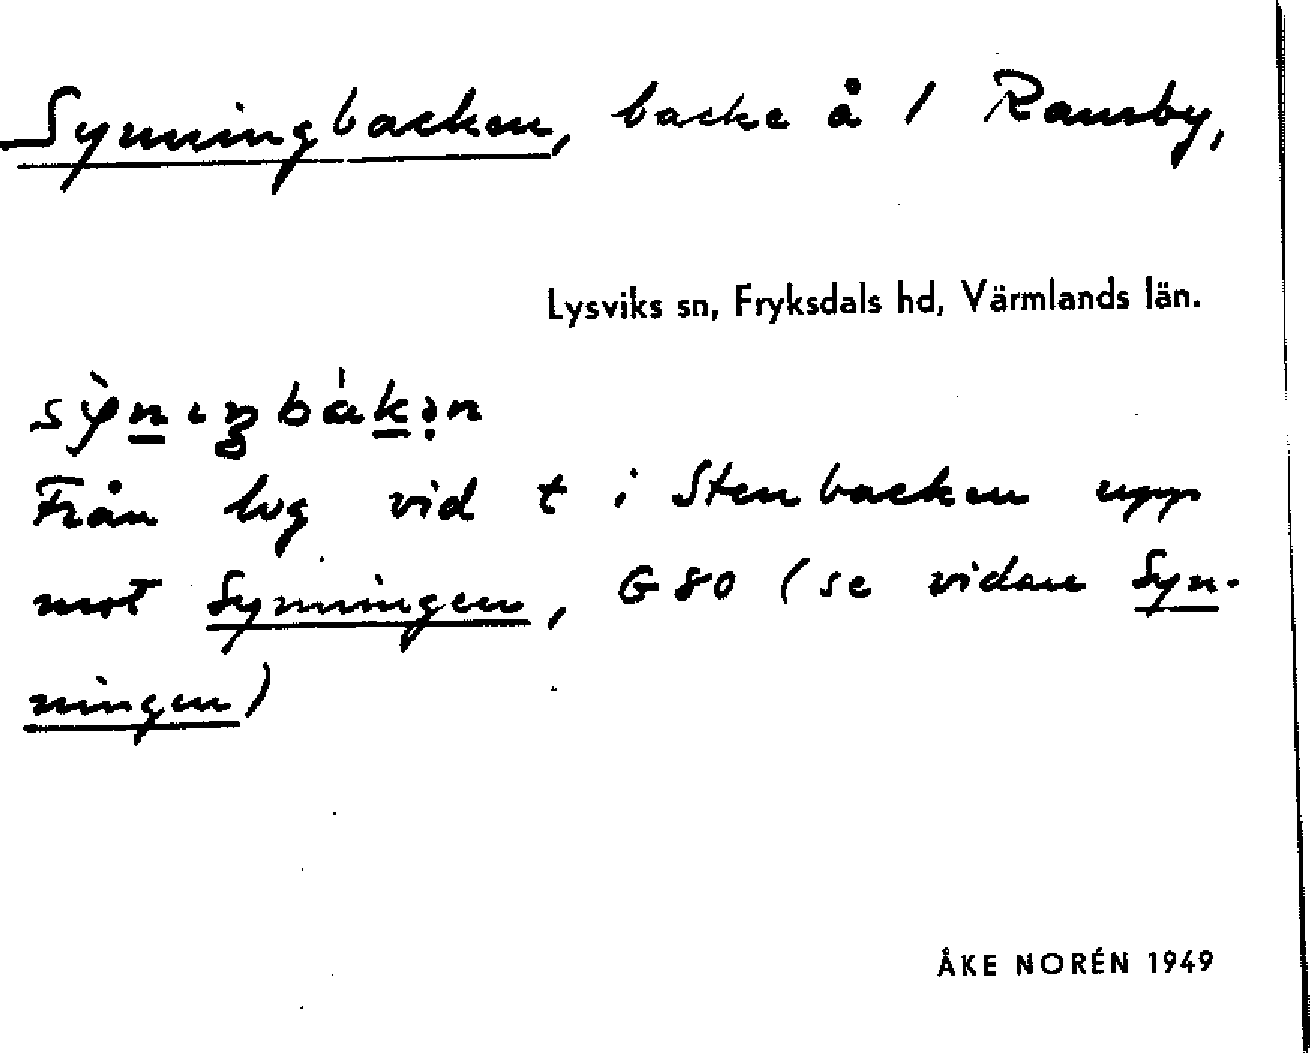 Synningbacken, backe å 1 Ransby,
Lysviks sn, Fryksdals hd, Värmlands län.
sỳn̲ıŋbák̲ə̣n
Från lvg vid t i Stenbacken upp
mot Synningen, G 80 (se vidare Syn-
ningen)
ÅKE NORÉN 1949